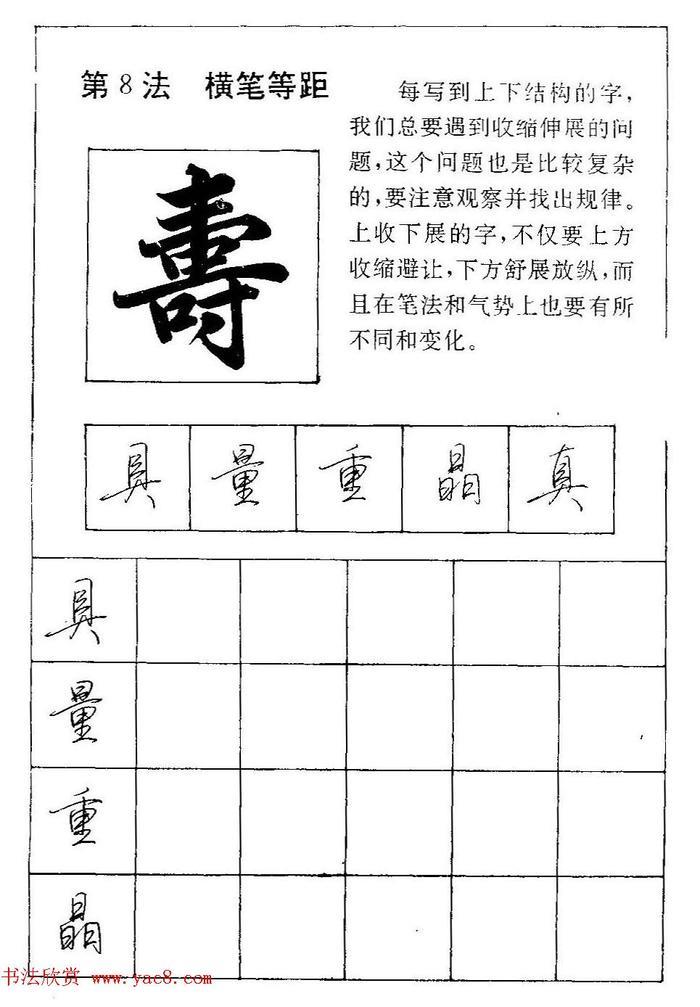 第8法 横笔等距
每写到上下结构的字，
我们总要遇到收缩伸展的问
题，这个问题也是比较复杂
的，要注意观察并找出规律。
上收下展的字，不仅要上方
收缩避让，下方舒展放纵，而
且在笔法和气势上也要有所
不同和变化。
壽
具 量 重 晶 真
具
量
重
晶
书法欣赏 www.yac8.com